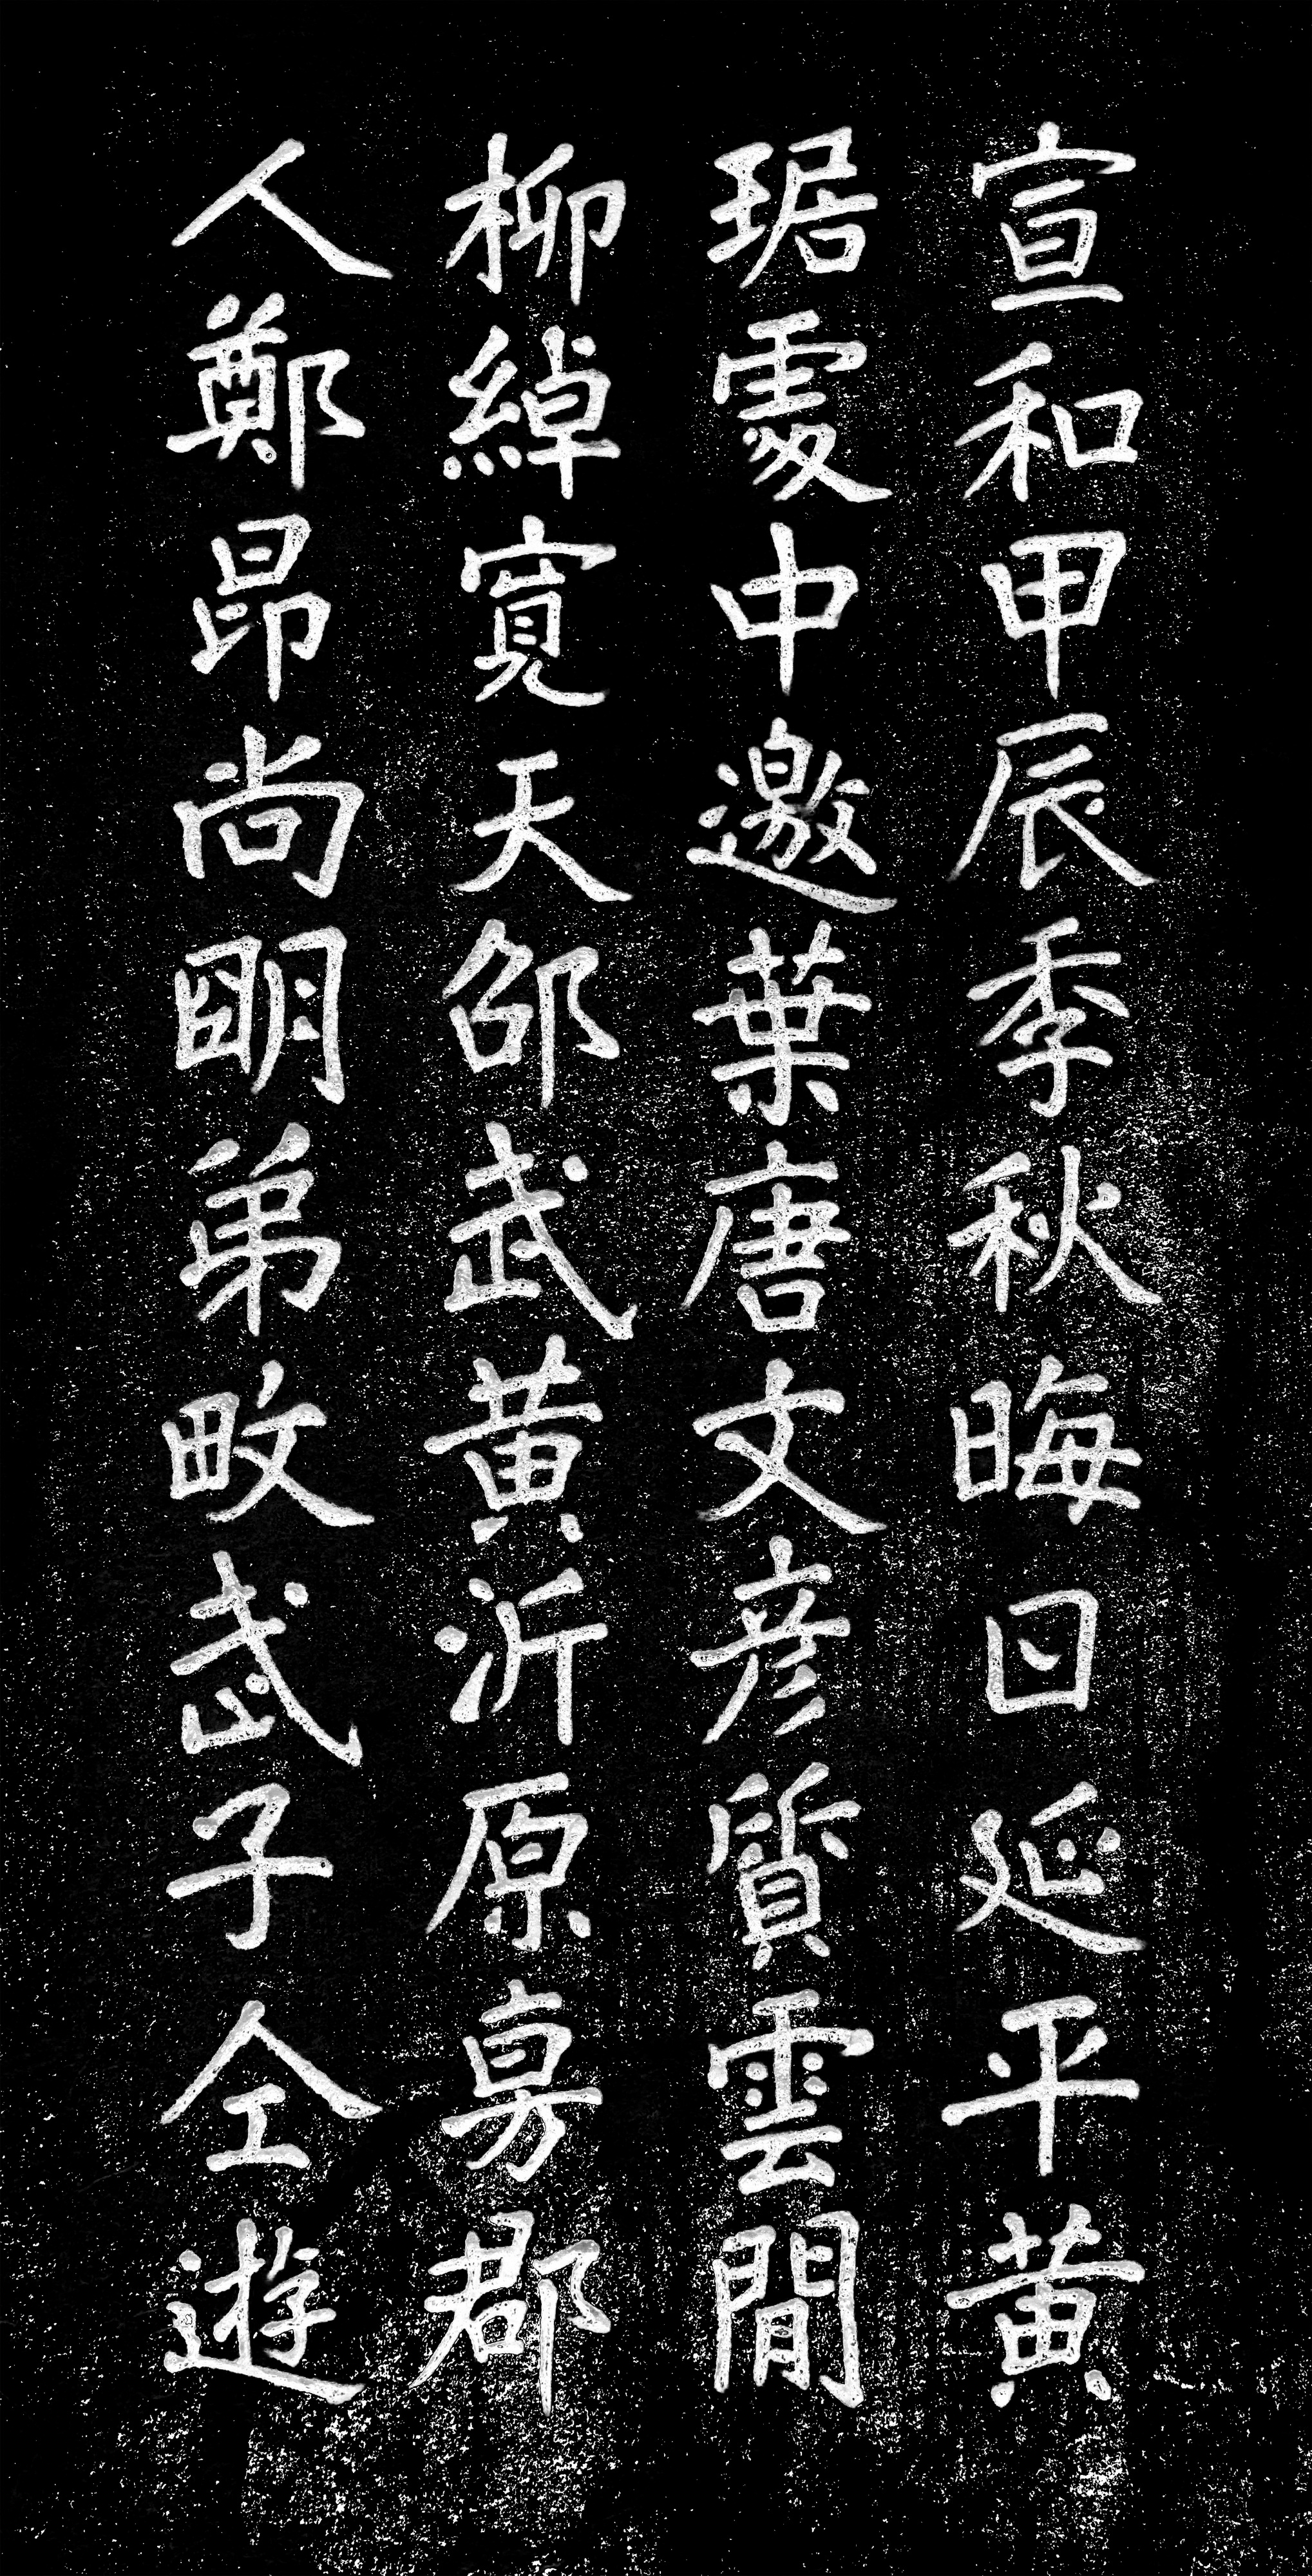 宣和甲辰季秋晦日延平黃
琚處中邀葉唐文彥質雲間
柳綽寬天邵武黃沂原魯郡
人鄭昂尚明弟畋武子仝遊